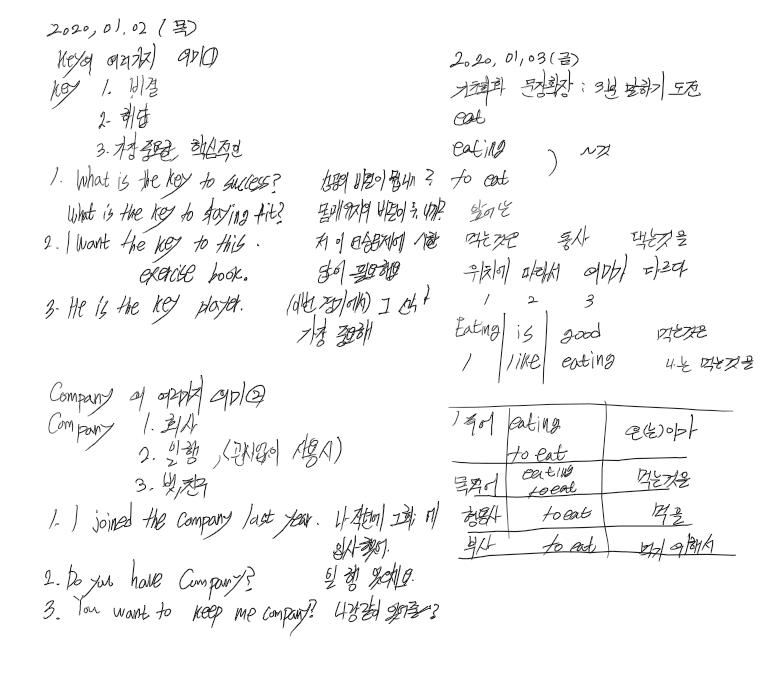 2020, 01. 02 (목)
key의 여러가지 의미①
key 1. 비결
2. 해답
3. 가장 중요한, 핵심적인
1. What is the key to success? 성공의 비결이 뭡니까?
What is the key to staying fit? 몸매유지의 비결이
2. I want the key to this. 저 이 연습문제에
exercise book. 답이 필요해요
3. He is the key player. (이번 경기에서) 그 선수가
가장 중요해
Company 의 여러가지 의미②
Company 1. 회사
2. 일행, (관사없이 사용시)
3. 벗, 친구
1. I joined the company last year. 나 작년에 그 회사에
입사했어.
2. Do you have Company? 일행 있어요.
3. You want to keep me company? 나랑 같이 있어줄래?
2020, 01, 03 (금)
기초회화 문장확장 : 3분 말하기 도전
eat
eating ) ~것
to eat
먹는것은 동사 먹는것을
위치에 따라서 의미가 다르다
1 2 3
Eating | is | good 먹는것은
I | like | eating 나는 먹는것을
주어 eating 은(는)이가
to eat
목적어 eating 먹는것을
to eat
형용사 to eat 먹을
부사 to eat 먹기 위해서